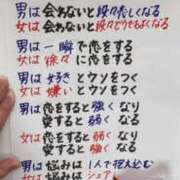 男は会わないと段々恋しくなる
女は会わないと段々どうでもよくなる
男は一瞬で恋をする
女は徐々に恋をする
男は好きとウソをつく
女は嫌いとウソをつく
男は恋をすると強くなり
愛すると弱くなる
女は恋をすると弱くなり
愛すると強くなる
男は悩みは1人で抱え込む
女は悩みはシェア